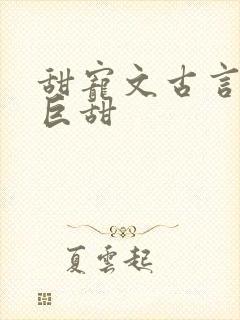 甜寵文古言
巨甜
夏雲起